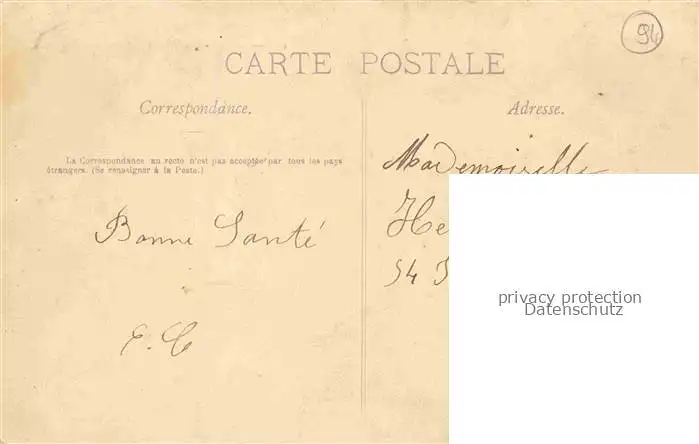 94
CARTE POSTALE
Correspondance.
Adresse.
La Correspondance au recto n'est pas acceptée par tous les pays
étrangers. (Se renseigner à la Poste.)
Mademoiselle
He
54
Bonne Santé
E. C
privacy protection
Datenschutz